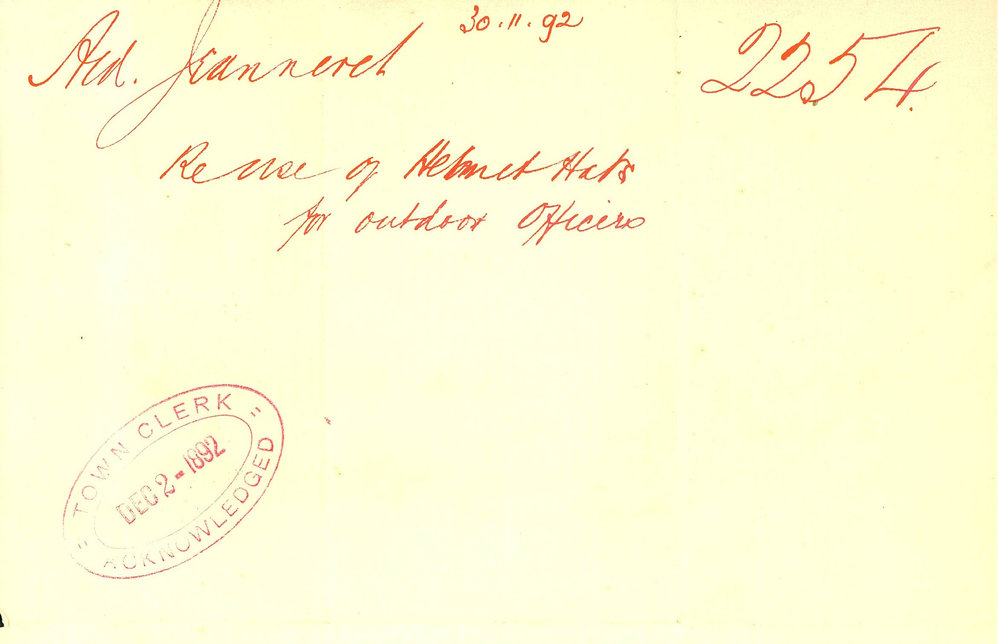 30.11.92
Ald. Jeanneret
2254.
Re use of Helmet Hats
for outdoor Officers
" TOWN CLERK "
DEC 2 - 1892
ACKNOWLEDGED